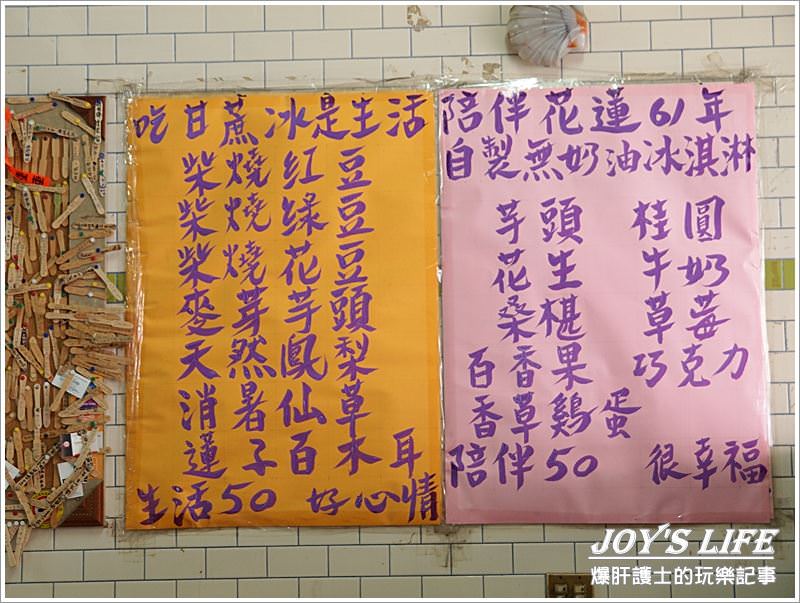 吃甘蔗冰是生活
柴燒紅豆
柴燒綠豆
柴燒花豆
麥芽芋頭
天然鳳梨
消暑仙草
蓮子百木耳
生活50 好心情
陪伴花蓮61年
自製無奶油冰淇淋
芋頭 桂圓
花生 牛奶
桑椹 草莓
百香果 巧克力
香草雞蛋
陪伴50 很幸福
JOY'S LIFE
爆肝護士的玩樂記事